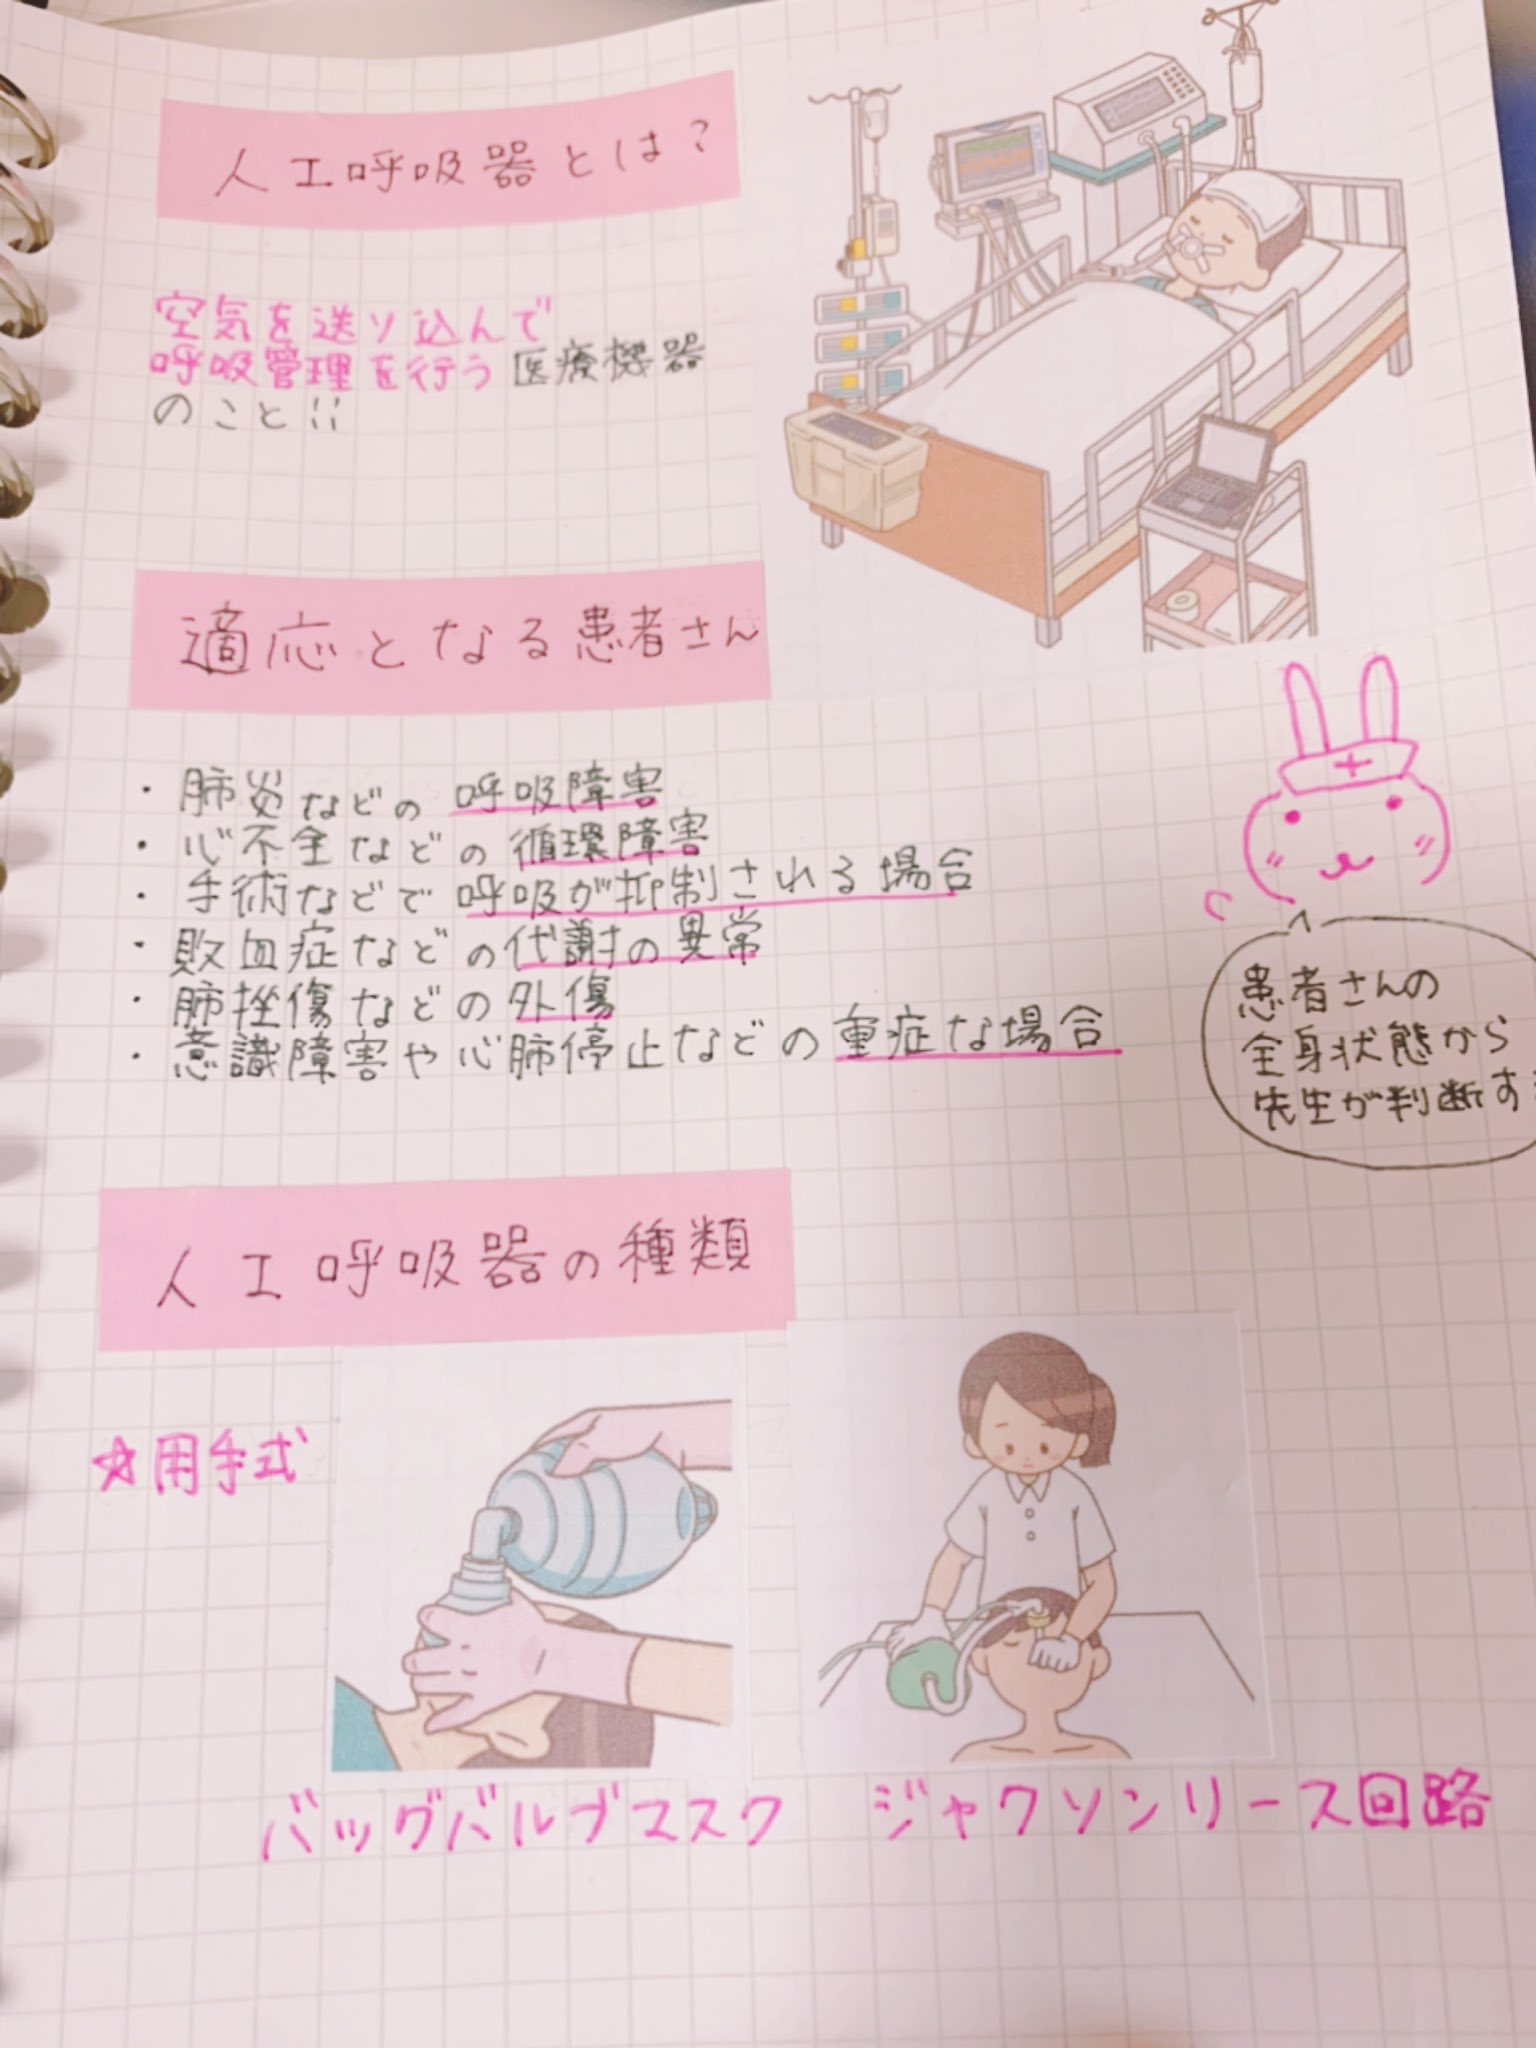 人工呼吸器とは？
空気を送り込んで
呼吸管理を行う医療機器
のこと!!
適応となる患者さん
・肺炎などの呼吸障害
・心不全などの循環障害
・手術などで呼吸が抑制される場合
・敗血症などの代謝の異常
・肺挫傷などの外傷
・意識障害や心肺停止などの重症な場合
患者さんの
全身状態から
先生が判断す
人工呼吸器の種類
☆用手式
バッグバルブマスク
ジャクソンリース回路